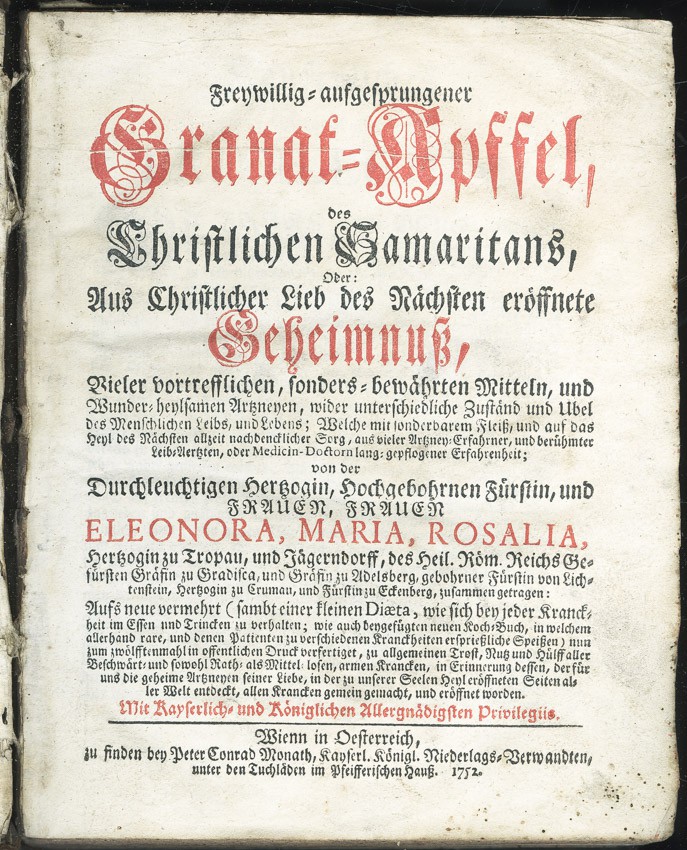 Freywillig-aufgesprungener
Granat-Apffel,
des
Christlichen Samaritans,
Oder:
Aus Christlicher Lieb des Nächsten eröffnete
Geheimnuß,
Vieler vortrefflichen, sonders-bewährten Mitteln, und
Wunder-heylsamen Artzneyen, wider unterschiedliche Zuständ und Ubel
des Menschlichen Leibs, und Lebens; Welche mit sonderbarem Fleiß, und auf das
Heyl des Nächsten allzeit nachdencklicher Sorg, aus vieler Artzney-Erfahrner, und berühmter
Leib-Aertzten, oder Medicin-Doctorn lang-gepflogener Erfahrenheit;
von der
Durchleuchtigen Hertzogin, Hochgebohrnen Fürstin, und
FRAUEN, FRAUEN
ELEONORA, MARIA, ROSALIA,
Hertzogin zu Tropau, und Jägerndorff, des Heil. Röm. Reichs Ge-
fürsten Gräfin zu Gradisca, und Gräfin zu Adelsberg, gebohrner Fürstin von Lich-
tenstein, Hertzogin zu Crumau, und Fürstin zu Eckenberg, zusammen getragen:
Aufs neue vermehrt (sambt einer kleinen Diæta, wie sich bey jeder Kranck-
heit im Essen und Trincken zu verhalten; wie auch beygefügten neuen Koch-Buch, in welchem
allerhand rare, und denen Patienten zu verschiedenen Kranckheiten ersprießliche Speißen) nun
zum zwölfftenmahl in offentlichen Druck verfertiget, zu allgemeinen Trost, Nutz und Hülff aller
Beschwärt- und sowohl Rath- als Mittel-losen, armen Krancken, in Erinnerung dessen, der für
uns die geheime Artzneyen seiner Liebe, in der zu unserer Seelen Heyl eröffneten Seiten al-
ler Welt entdeckt, allen Krancken gemein gemacht, und eröffnet worden.
Mit Kayserlich- und Königlichen Allergnädigsten Privilegiis.
Wienn in Oesterreich,
zu finden bey Peter Conrad Monath, Kayserl. Königl. Niederlags-Verwandten,
unter den Tuchläden im Pfeifferischen Hauß. 1752.